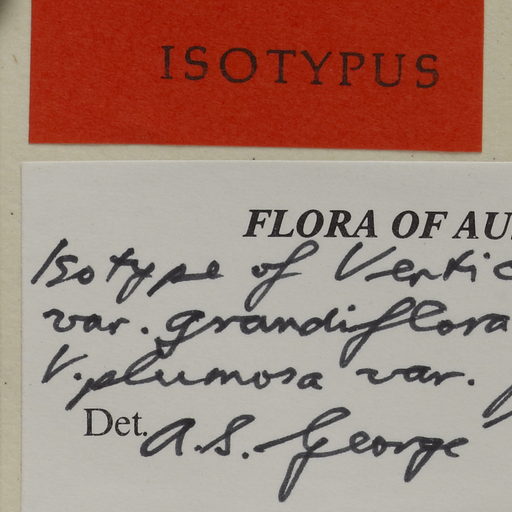 ISOTYPUS
FLORA OF AU
Isotype of Vertic
var. grandiflora
V. plumosa var.
Det. A.S. George